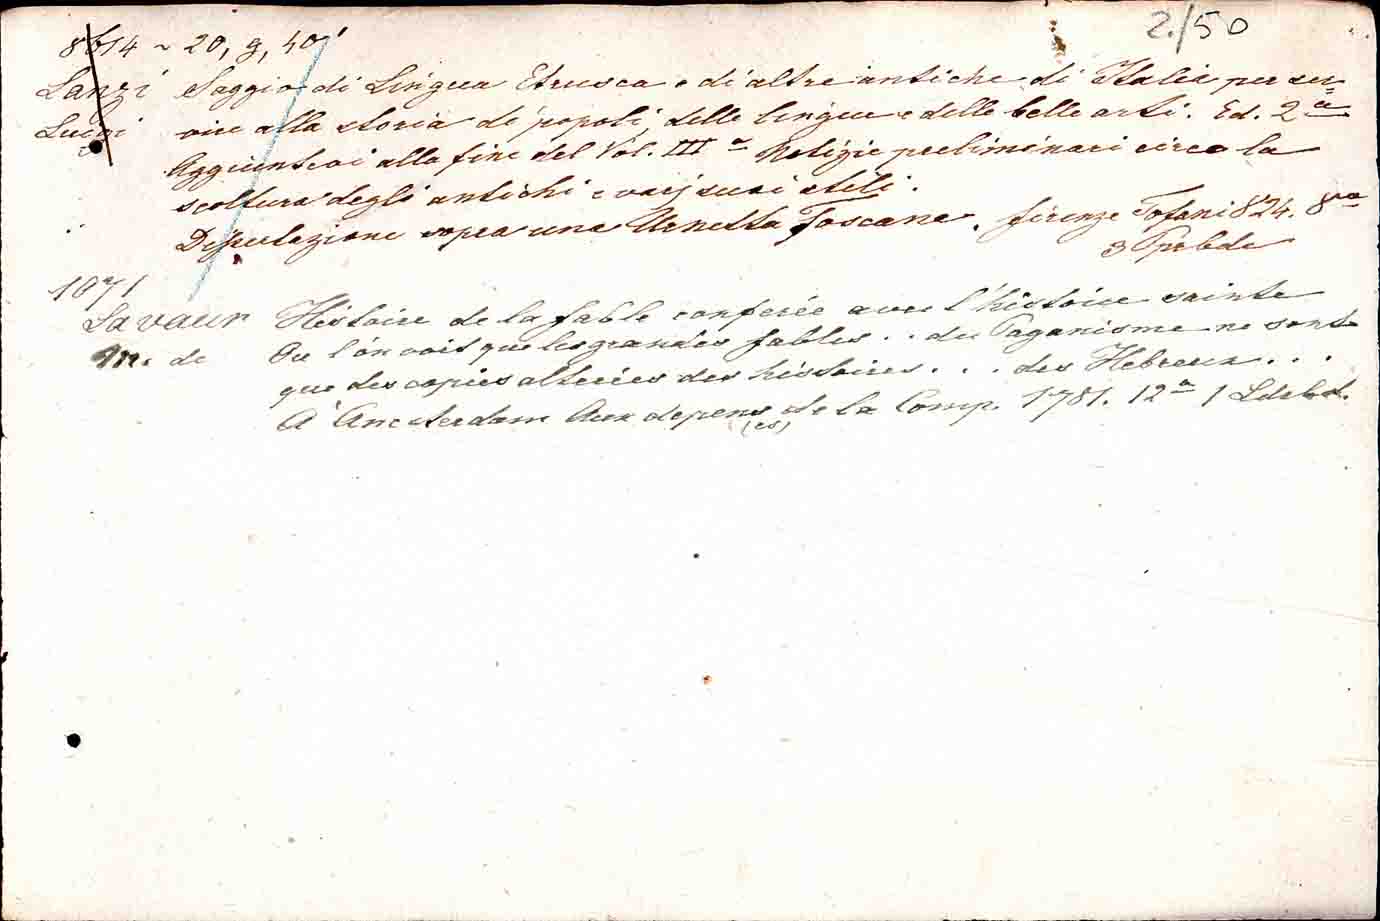 2./50
8614 ~ 20, g, 40
Lanzi Saggio di Lingua Etrusca e di altre antiche di Italia per ser=
Luigi vire alla storia de' popoli, delle lingue e delle belle arti. Ed. 2a
Aggiuntevi alla fine del Vol. III Notizie preliminari circa la
scoltura degli antichi e varj suoi stili.
sopra una Urnetta Toscana. firenze Tofani 824. 8vo
3
1071
Lavaur Histoire de la fable conferée avec l'histoire sainte
M. de Ou l'on voit que les grandes fables . . du Paganisme ne sont
que des copies alterées des histoires . . . des Hebreux . . .
A Amsterdam Aux depens de la Comp. 1781. 12o 1
(es)